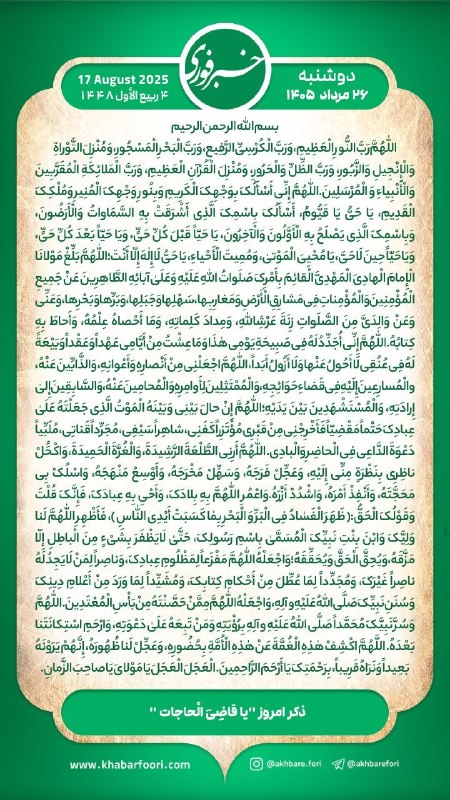 دوشنبه
۲۶ مرداد ۱۴۰۵
خبرفوری
17 August 2025
۴ ربیع الأول ۱۴۴۸
بسم الله الرحمن الرحیم
اللهُمَّ رَبَّ النُّورِ الْعَظِیمِ، وَرَبَّ الْکُرْسِیِّ الرَّفِیعِ، وَرَبَّ الْبَحْرِ الْمَسْجُورِ، وَمُنْزِلَ التَّوْراةِ
وَالْإِنْجِیلِ وَالزَّبُورِ، وَرَبَّ الظِّلِّ وَالْحَرُورِ، وَمُنْزِلَ الْقُرْآنِ الْعَظِیمِ، وَرَبَّ الْمَلائِکَةِ الْمُقَرَّبِینَ
وَالْأَنْبِیاءِ وَالْمُرْسَلِینَ. اللّٰهُمَّ إِنِّی أَسْأَلُکَ بِوَجْهِکَ الْکَرِیمِ وَبِنُورِ وَجْهِکَ الْمُنِیرِ وَمُلْکِکَ
الْقَدِیمِ، یَا حَیُّ یَا قَیُّومُ، أَسْأَلُکَ بِاسْمِکَ الَّذِی أَشْرَقَتْ بِهِ السَّمَاوَاتُ وَالْأَرَضُونَ،
وَبِاسْمِکَ الَّذِی یَصْلَحُ بِهِ الْأَوَّلُونَ وَالْآخِرُونَ، یَا حَیّاً قَبْلَ کُلِّ حَیٍّ، وَیَا حَیّاً بَعْدَ کُلِّ حَیٍّ،
وَیَا حَیّاً حِینَ لَاحَیَّ، یَا مُحْیِیَ الْمَوْتىٰ، وَمُمِیتَ الْأَحْیاءِ، یَا حَیُّ لَاإِلٰهَ إِلّا أَنْتَ؛ اللّٰهُمَّ بَلِّغْ مَوْلانَا
الْإِمامَ الْهادِیَ الْمَهْدِیَّ الْقائِمَ بِأَمْرِکَ صَلَواتُ اللهِ عَلَیْهِ وَعَلَى آبائِهِ الطَّاهِرِینَ عَنْ جَمِیعِ
الْمُؤْمِنِینَ وَالْمُؤْمِناتِ فِی مَشارِقِ الْأَرْضِ وَمَغارِبِها، سَهْلِها وَجَبَلِها، وَبَرِّها وَبَحْرِها، وَعَنِّی
وَعَنْ وَالِدَیَّ مِنَ الصَّلَواتِ زِنَةَ عَرْشِ اللهِ، وَمِدادَ کَلِماتِهِ، وَمَا أَحْصاهُ عِلْمُهُ، وَأَحاطَ بِهِ
کِتابُهُ. اللّٰهُمَّ إِنِّی أُجَدِّدُ لَهُ فِی صَبِیحَةِ یَوْمِی هٰذَا وَمَا عِشْتُ مِنْ أَیَّامِی عَهْداً وَعَقْداً وَبَیْعَةً
لَهُ فِی عُنُقِی لَاأَحُولُ عَنْها وَلَا أَزُولُ أَبَداً، اللّٰهُمَّ اجْعَلْنِی مِنْ أَنْصارِهِ وَأَعْوانِهِ، وَالذَّابِّینَ عَنْهُ،
وَالْمُسارِعِینَ إِلَیْهِ فِی قَضاءِ حَوَائِجِهِ، وَالْمُمْتَثِلِینَ لِأَوامِرِهِ وَالْمُحامِینَ عَنْهُ، وَالسَّابِقِینَ إِلىٰ
إِرادَتِهِ، وَالْمُسْتَشْهَدِینَ بَیْنَ یَدَیْهِ؛ اللّٰهُمَّ إِنْ حالَ بَیْنِی وَبَیْنَهُ الْمَوْتُ الَّذِی جَعَلْتَهُ عَلَىٰ
عِبادِکَ حَتْماً مَقْضِیّاً فَأَخْرِجْنِی مِنْ قَبْرِی مُؤْتَزِراً کَفَنِی، شاهِراً سَیْفِی، مُجَرِّداً قَناتِی، مُلَبِّیاً
دَعْوَةَ الدَّاعِی فِی الْحاضِرِ وَالْبادِی. اللّٰهُمَّ أَرِنِی الطَّلْعَةَ الرَّشِیدَةَ، وَالْغُرَّةَ الْحَمِیدَةَ، وَاکْحُلْ
ناظِرِی بِنَظْرَةٍ مِنِّی إِلَیْهِ، وَعَجِّلْ فَرَجَهُ، وَسَهِّلْ مَخْرَجَهُ، وَأَوْسِعْ مَنْهَجَهُ، وَاسْلُکْ بِی
مَحَجَّتَهُ، وَأَنْفِذْ أَمْرَهُ، وَاشْدُدْ أَزْرَهُ، وَاعْمُرِ اللّٰهُمَّ بِهِ بِلادَکَ، وَأَحْیِ بِهِ عِبادَکَ، فَإِنَّکَ قُلْتَ
وَقَوْلُکَ الْحَقُّ: ( ظَهَرَ الْفَسادُ فِی الْبَرِّ وَالْبَحْرِ بِما کَسَبَتْ أَیْدِی النَّاسِ )، فَأَظْهِرِ اللّٰهُمَّ لَنا
وَلِیَّکَ وَابْنَ بِنْتِ نَبِیِّکَ الْمُسَمَّىٰ بِاسْمِ رَسُولِکَ، حَتَّىٰ لَا یَظْفَرَ بِشَیْءٍ مِنَ الْباطِلِ إِلّا
مَزَّقَهُ، وَیُحِقَّ الْحَقَّ وَیُحَقِّقَهُ؛ وَاجْعَلْهُ اللّٰهُمَّ مَفْزَعاً لِمَظْلُومِ عِبادِکَ، وَناصِراً لِمَنْ لَا یَجِدُ لَهُ
ناصِراً غَیْرَکَ، وَمُجَدِّداً لِمَا عُطِّلَ مِنْ أَحْکامِ کِتابِکَ، وَمُشَیِّداً لِمَا وَرَدَ مِنْ أَعْلامِ دِینِکَ
وَسُنَنِ نَبِیِّکَ صَلَّى اللّٰهُ عَلَیْهِ وَآلِهِ، وَاجْعَلْهُ اللّٰهُمَّ مِمَّنْ حَصَّنْتَهُ مِنْ بَأْسِ الْمُعْتَدِینَ. اللّٰهُمَّ
وَسُرَّ نَبِیَّکَ مُحَمَّداً صَلَّى اللّٰهُ عَلَیْهِ وَآلِهِ بِرُؤْیَتِهِ وَمَنْ تَبِعَهُ عَلَىٰ دَعْوَتِهِ، وَارْحَمِ اسْتِکانَتَنا
بَعْدَهُ. اللّٰهُمَّ اکْشِفْ هٰذِهِ الْغُمَّةَ عَنْ هٰذِهِ الْأُمَّةِ بِحُضُورِهِ، وَعَجِّلْ لَنا ظُهُورَهُ، إِنَّهُمْ یَرَوْنَهُ
بَعِیداً وَنَرَاهُ قَرِیباً، بِرَحْمَتِکَ یَا أَرْحَمَ الرَّاحِمِینَ. الْعَجَلَ الْعَجَلَ یَا مَوْلایَ یَا صاحِبَ الزَّمانِ.
ذکر امروز "یا قاضِیَ الْحاجات "
www.khabarfoori.com
@akhbare.fori
@akhbarefori